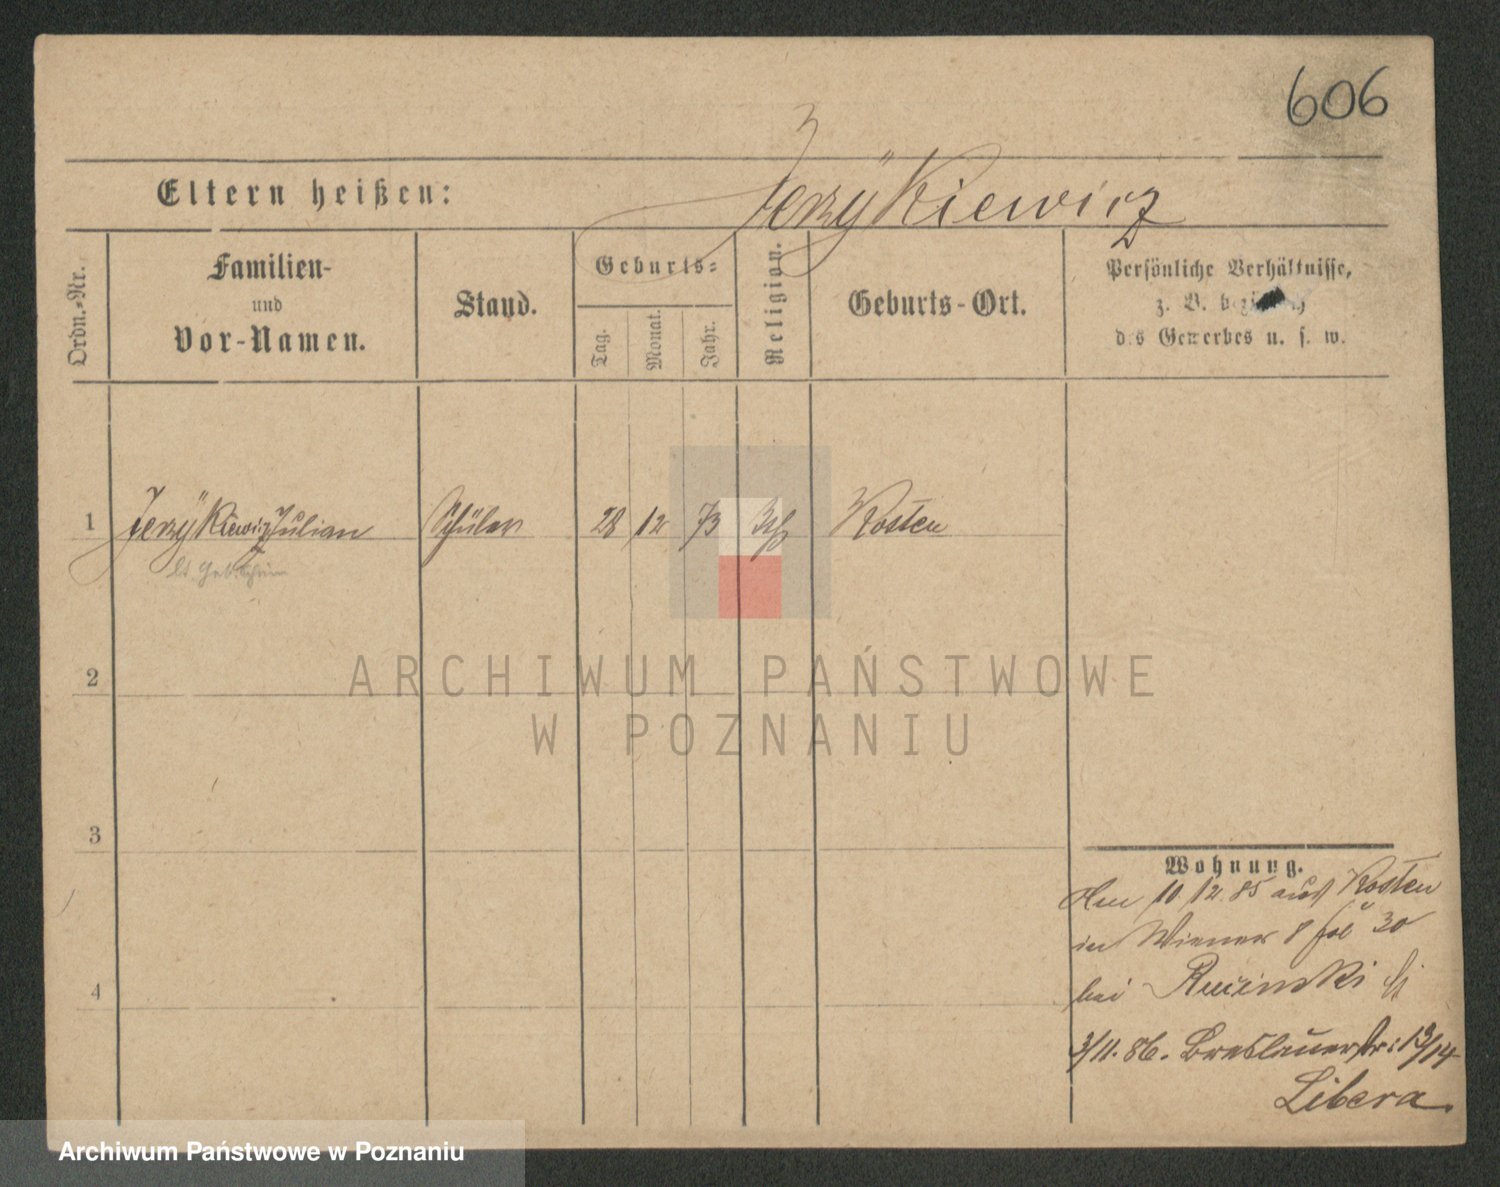 606
Eltern heißen: Jerzÿkiewicz
Ordn.-Nr.
Familien-
und
Vor-Namen.
Stand.
Geburts-
Tag.
Monat.
Jahr.
Religion.
Geburts-Ort.
Persönliche Verhältnisse,
z. B.
des Gewerbes u. s. w.
1 Jerzÿkiewicz Julian Schüler 28 12 73 Kosten
2
3
4
Wohnung.
10.12.85 aus Kosten
in Wiener 8
bei Rucinski
3/11.86. Breslauerstr: 13/14
Libera.
ARCHIWUM PAŃSTWOWE
W POZNANIU
Archiwum Państwowe w Poznaniu